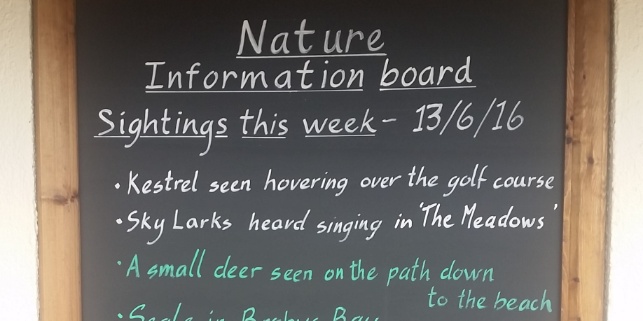 Nature
Information board
Sightings this week - 13/6/16
• Kestrel seen hovering over the golf course
• Sky Larks heard singing in 'The Meadows'
• A small deer seen on the path down
to the beach
• in Bay